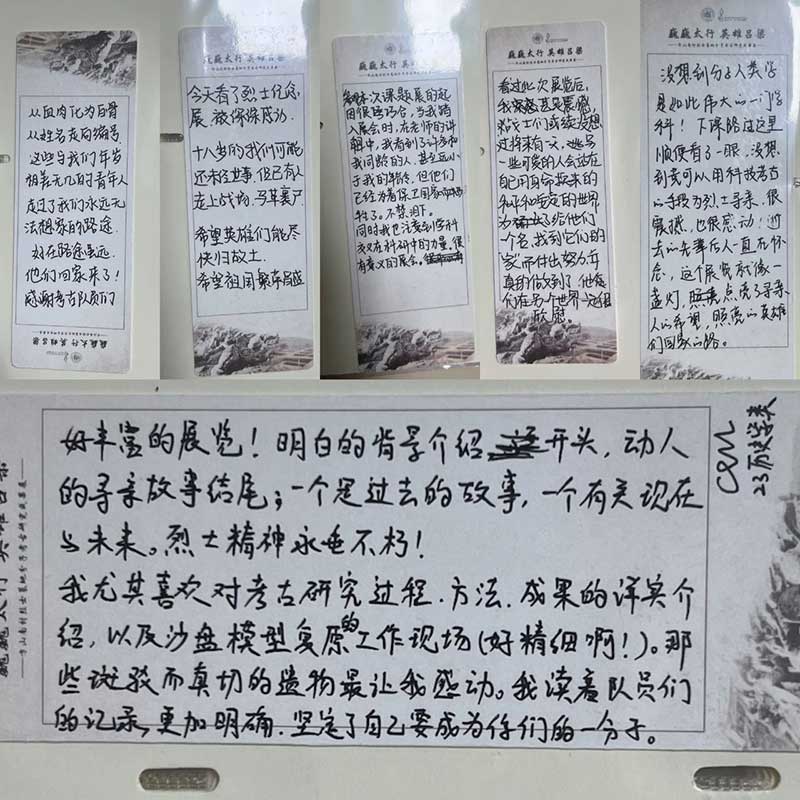 从血肉化为白骨
从姓名走向编号
这些与我们年岁
相差无几的青年人
走过了我们永远无
法想象的路途.
好在路途虽远.
他们回家来了!
感谢考古队员们
巍巍太行 英雄吕梁
巍巍太行 英雄吕梁
今天看了烈士纪念
展,被深深感动.
十八岁的我们可能
还未经世事,但已有人
走上战场,马革裹尸
希望英雄们能尽
快归故土.
希望祖国繁荣昌盛
巍巍太行 英雄吕梁
次课题展的起
因很巧合,当我踏
入展会时,在老师的讲
解中,我看到了许多和
我同龄的人,甚至远小
于我的年龄,但他们
已经为着保卫国家
牺牲了。不禁泪下。
同时我也注意到学科
交叉在科研中的力量,很
有意义的展会。
巍巍太行 英雄吕梁
看过此次展览后,
我甚是震撼,
战士们或续没想
过将来有一天,她与
一些可爱的人会站在
自己用身命换来的
和平和安定的世界
为了给他们一
个名,找到它们的
“家”而付出努力并
真的做到了,他
们在另个世界一定很
欣慰。
巍巍太行 英雄吕梁
没想到分子人类学
是如此伟大的一门学
科!下课路过这里
顺便看了一眼,没想
到竟可以用科技考古
的手段为烈士寻亲,很
震撼,也很感动!逝
去的先辈后人一直在怀
念,这个展览就像一
盏灯,点亮了寻亲
人的希望,照亮的英雄
们回家的路。
好丰富的展览!明白的背景介绍开头,动人
的寻亲故事结尾;一个是过去的故事,一个有关现在
与未来。烈士精神永垂不朽!
我尤其喜欢对考古研究过程.方法.成果的详实介
绍,以及沙盘模型复原的工作现场(好精细啊!)。那
些斑驳而真切的遗物最让我感动。我读着队员们
的记录,更加明确.坚定了自己要成为你们的一分子。
23历史学类
巍巍太行 英雄吕梁